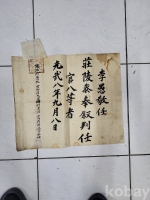 李愚敬任
莊陵參奉叙判任
官八等者
光武八年九月八日
kobay